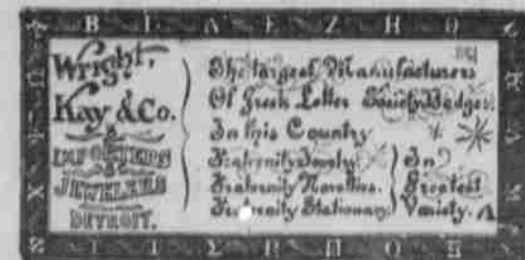 Wright,
Kay & Co.
IMPORTERS
JEWELERS
DETROIT.
The largest Manufacturers
Of Greek Letter Society Badges.
In this Country
Fraternity Jewelry.
Fraternity Novelties.
Fraternity Stationary.
In
Greatest
Variety.